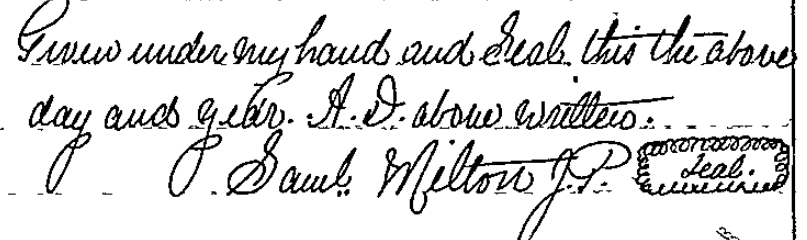 Given under my hand and Seal. this the above
day and year. A.D. above written.
Saml. Milton J.P. Seal.